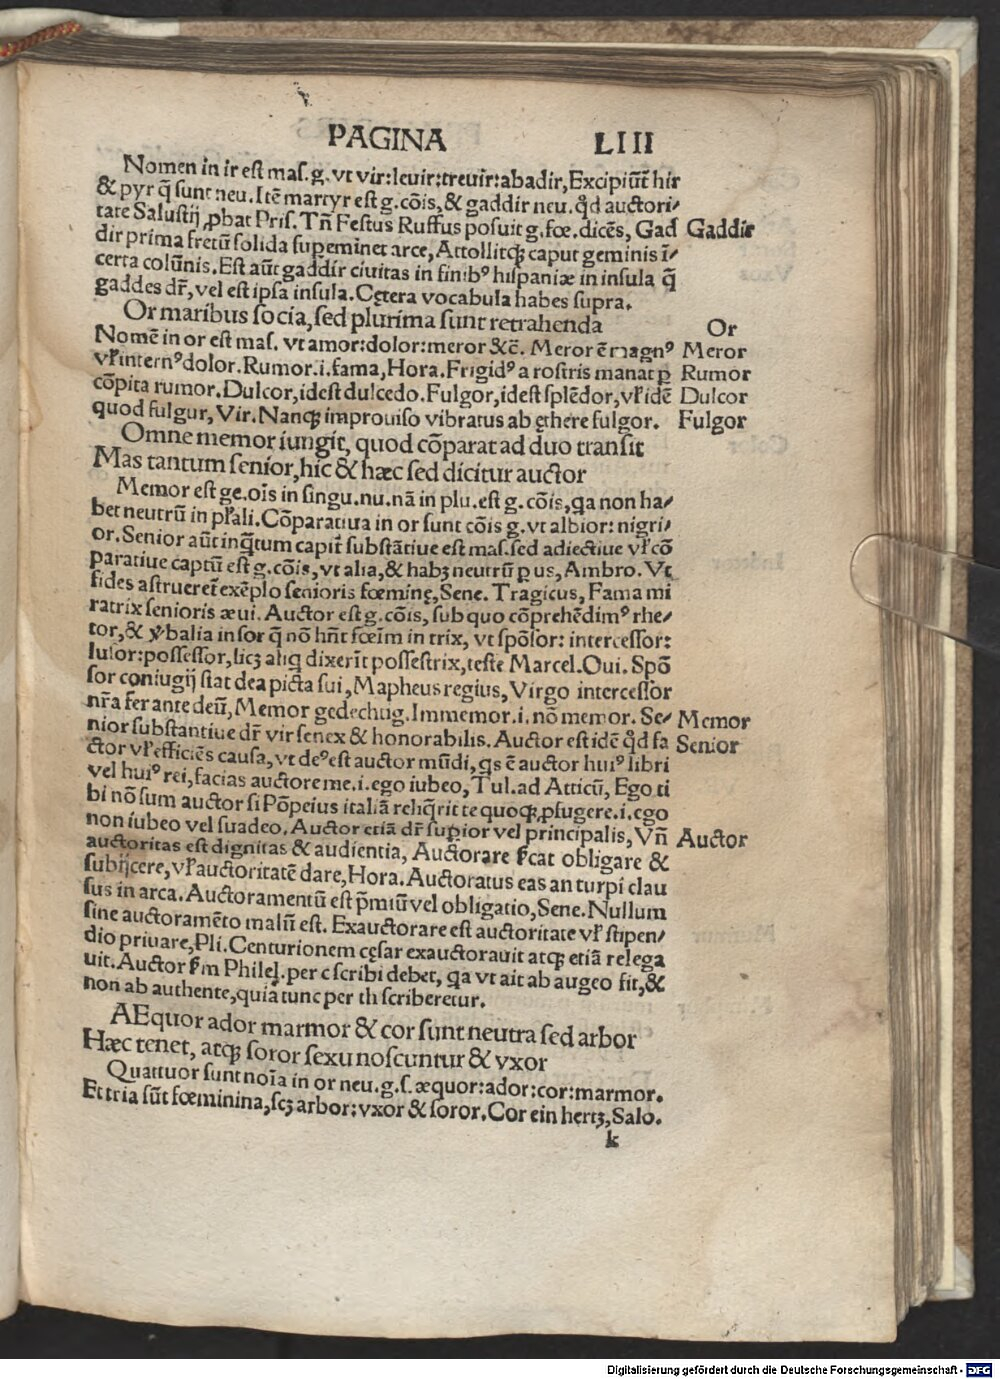 PAGINA LIII
Nomen in ir est mas. g. vt vir: leuir: treuir: abadir, Excipiūt̄ hir
& pyr q̄ sunt neu. Itē martyr est g. cōis, & gaddir neu. qd̄ auctori⸗
tate Salustij ꝓbat Pris. Tn̄ Festus Ruffus posuit g. fœ. dicēs, Gad Gaddir
dir prima fretū solida suꝑeminet arce, Attollitqꝫ caput geminis ī⸗
certa colūnis. Est aūt gaddir ciuitas in finibꝰ hispaniæ in insula q̄
gaddes dr̄, vel est ipsa insula. Cętera vocabula habes supra.
Or maribus socia, sed plurima sunt retrahenda Or
Nomē in or est mas. vt amor: dolor: meror &c̄. Meror ē magnꝰ Meror
vl̄ internꝰ dolor. Rumor. i. fama, Hora. Frigidꝰ a rostris manat ꝑ Rumor
cōpita rumor. Dulcor, idest dulcedo. Fulgor, idest splēdor, vl̄ idē Dulcor
quod fulgur, Vir. Nanqꝫ improuiso vibratus ab ęthere fulgor. Fulgor
Omne memor iungit, quod cōparat ad duo transit
Mas tantum senior, hic & hæc sed dicitur auctor
Memor est ge. ois̄ in singu. nu. nā in plu. est g. cōis, qa non ha⸗
bet neutrū in pl̄ali. Cōparatiua in or sunt cōis g. vt albior: nigri⸗
or. Senior aūt inq̄tum capit̄ substātiue est mas. sed adiectiue vl̄ cō
paratiue captū est g. cōis, vt alia, & habꝫ neutrū ꝑ us, Ambro. Vt
fides astrueret̄ exēplo senioris fœminę, Sene. Tragicus, Fama mi
ratrix senioris æui. Auctor est g. cōis, sub quo cōprehēdimꝰ rhe⸗
tor, & v̄balia in sor q̄ nō hn̄t fœim̄ in trix, vt spōsor: intercessor:
lusor: possessor, licꝫ aliq̄ dixerīt possestrix, teste Marcel. Oui. Spō
sor coniugij stat dea picta sui, Mapheus regius, Virgo intercessor
nr̄a fer ante deū, Memor gedechug. Immemor. i. nō memor. Se⸗ Memor
nior substantiue dr̄ vir senex & honorabilis. Auctor est idē qd̄ fa Senior
ctor vl̄ efficiēs causa, vt deꝰ est auctor mūdi, qs ē auctor huiꝰ libri
vel huiꝰ rei, facias auctore me. i. ego iubeo, Tul. ad Atticū, Ego ti
bi nō sum auctor si Pōpeius italiā reliq̄rit te quoqꝫ ꝓfugere. i. ego
non iubeo vel suadeo. Auctor etiā dr̄ suꝑior vel principalis, Vn̄ Auctor
auctoritas est dignitas & audientia, Auctorare s̄cat obligare &
subijcere, vl̄ auctoritatē dare, Hora. Auctoratus eas an turpi clau
sus in arca. Auctoramentū est p̄miū vel obligatio, Sene. Nullum
sine auctoramēto malū est. Exauctorare est auctoritate vl̄ stipen⸗
dio priuare, Pli. Centurionem cęsar exauctorauit atqꝫ etiā relega
uit. Auctor s̄m Philel. per c scribi debet, qa vt ait ab augeo fit, &
non ab authente, quia tunc per th scriberetur.
AEquor ador marmor & cor sunt neutra sed arbor
Hæc tenet, atqꝫ soror sexu noscuntur & vxor
Quattuor sunt noīa in or neu. g. s. æquor: ador: cor: marmor.
Et tria sūt fœminina, scꝫ arbor: vxor & soror. Cor ein hertꝫ, Salo.
k
Digitalisierung gefördert durch die Deutsche Forschungsgemeinschaft - DFG